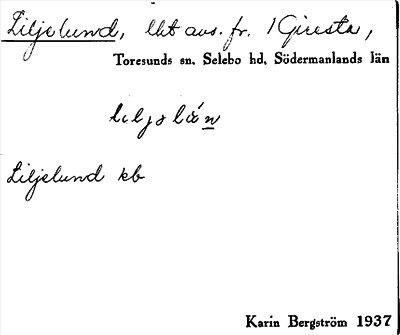 Liljelund, lht avs. fr. 1 Giresta,
Toresunds sn. Selebo hd, Södermanlands län
Liljelund kb
Karin Bergström 1937